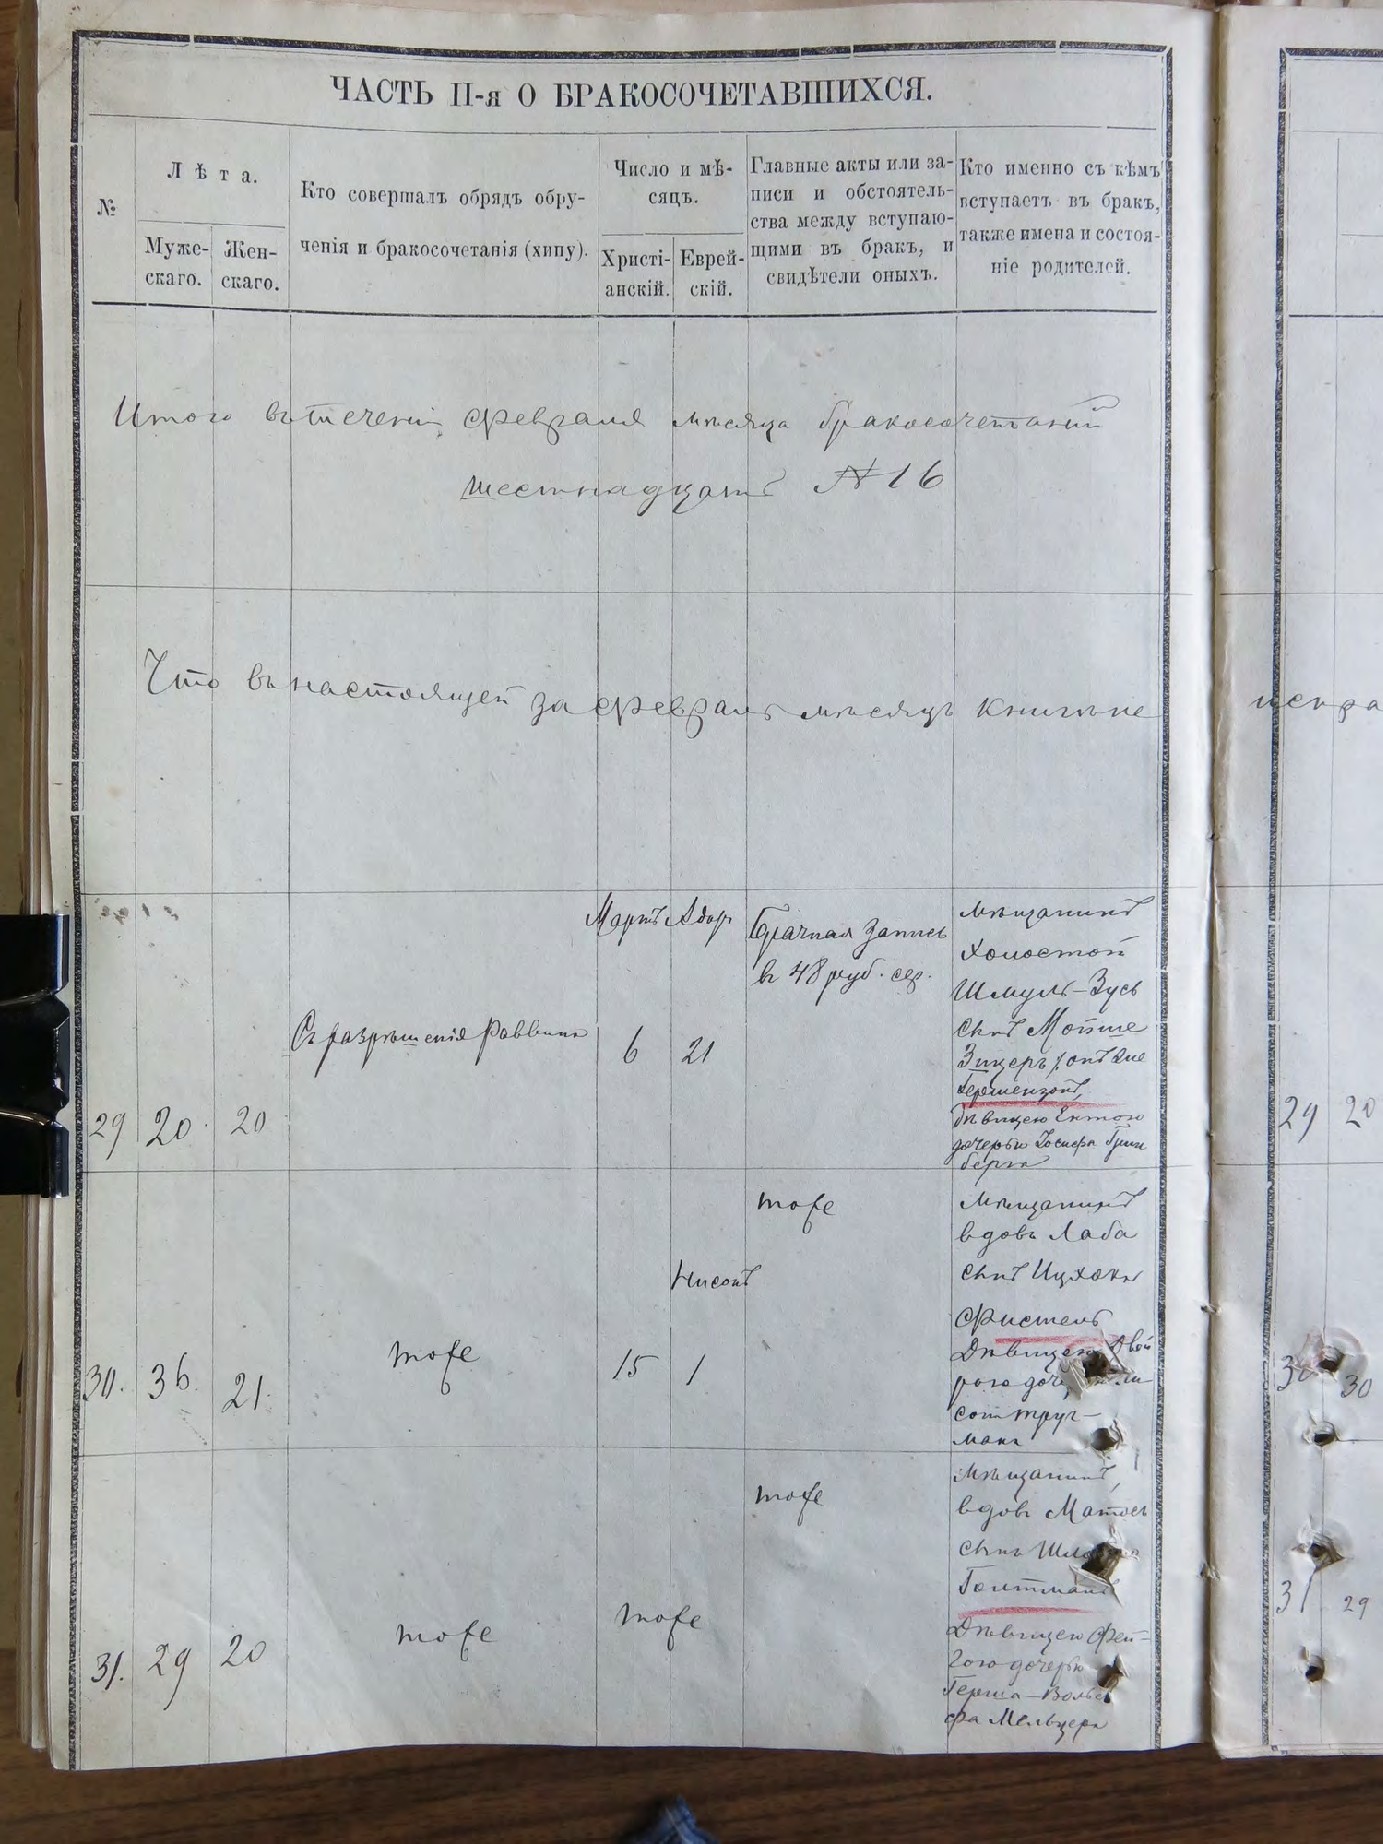 ЧАСТЬ II-я О БРАКОСОЧЕТАВШИХСЯ.
№
Лѣта.
Муже-
скаго.
Жен-
скаго.
Кто совершалъ обрядъ обру-
ченія и бракосочетанія (хипу).
Число и мѣ-
сяцъ.
Христі-
анскій.
Еврей-
скій.
Главные акты или за-
писи и обстоятель-
ства между вступаю-
щими въ бракъ, и
свидѣтели оныхъ.
Кто именно съ кѣмъ
вступаетъ въ бракъ,
также имена и состоя-
ніе родителей.
Итого въ теченіи февраля мѣсяца бракосочетаній
шестнадцать №16
Что въ настоящей за февраль мѣсяцъ книгѣ не
29 20 20
Съ разрѣшенія Раввина
Мартъ Адар
6 21
Брачная запись
въ 48 руб. сер.
мѣщанинъ
холостой
Шмуль-Зусь
сынъ Мошше
Зицеръ, онъ же
Гершензонъ,
дѣвицею Ентою
дочерью Іосифа Грин
берга
30. 36. 21.
тоже
15
Нисонъ
1
тоже
мѣщанинъ
вдовъ Лаба
сынъ Ицхока
Фистель
дѣвицею Двой
рою
ман
31. 29 20
тоже
тоже
тоже
мѣщанинъ,
вдовъ Матось
сынъ
Голтманъ
дѣвицею Фей-
гою дочерью
Герша-Воль
фа Мельцера
испра
29 20
30 30
31 29